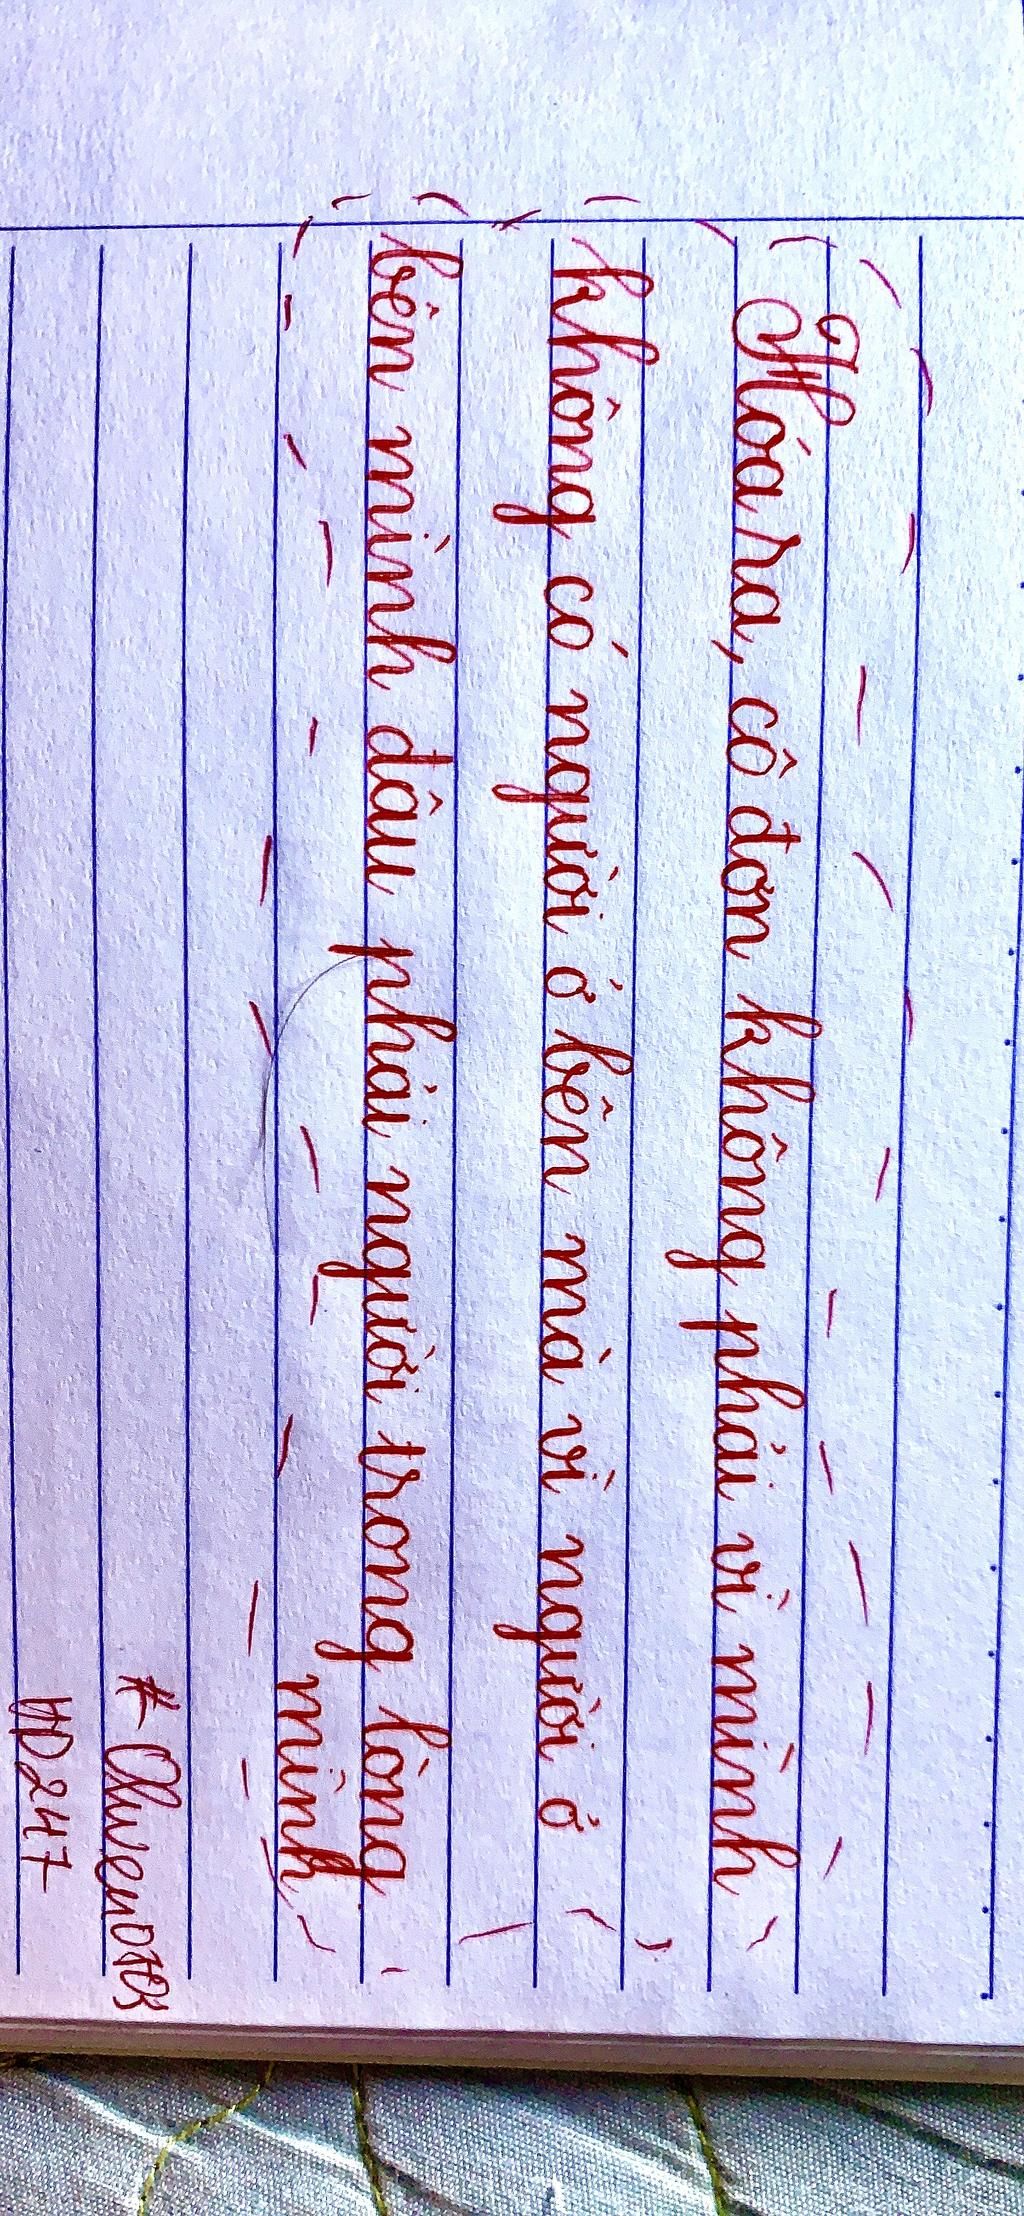 Thóa ra, cô đơn không phải vì mình
không có người ở bên mà vì người ở
bên mình đâu phải người trong lòng
mình
HD247